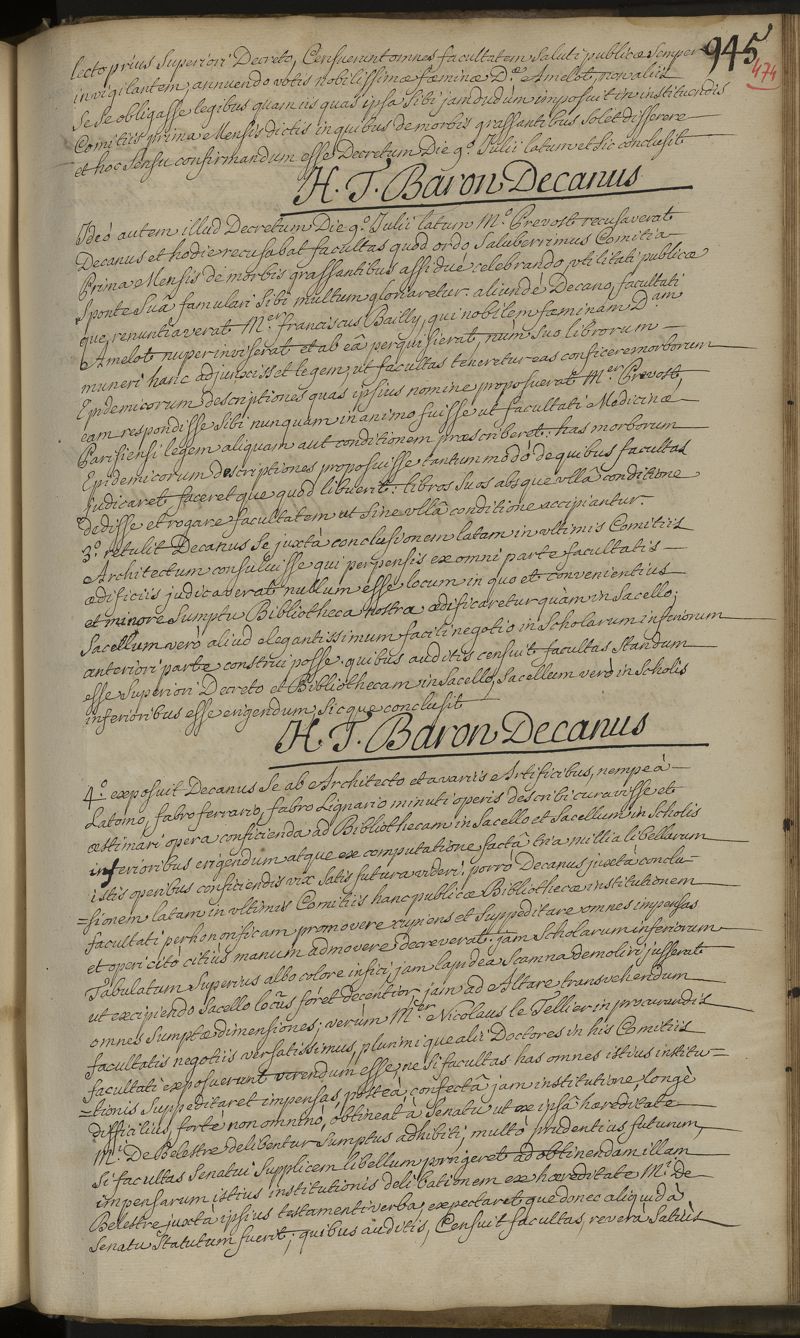 945
474
lecto prius Superiori Decreto, Censuerunt omnes facultatem Saluti publicæ Semper
invigilantem, annuendo votis nobilissimæ fæminæ D.æ Amelot, non aliis
Se Se obligasse legibus quam iis quas ipsa Sibi jamdudùm imposuit in instituendis
Comitiis prima Mensis dictis in quibus de morbis grassantibus Solet disserere
et hoc Sensu confirmandum esse Decretum Die 9.º Julii latum et Sic conclusit
H. T. Baron Decanus
Ideò autem illud Decretum Die 9.º Julii latum M.º Prevost recusaverat
Decanus et hodie recusabat facultas quod ordo Saluberrimus Comitia
Prima Mensis de morbis grassantibus assiduè celebrando, utilitati publicæ
Sponte Suâ famulari Sibi multum gloriaretur. aliunde Decano, facultati
que, renuntiaverat M.er franciscus Bailly, qui nobilem fæminam D.am
Amelot nuper inviserat et ab eâ perquisierat, nùm suo librorum
muneri hanc adjunxisset legem, ut facultas teneretur eas conficere morborum
Epidemicorum descriptiones quas ipsius nomine proposuerat M.er Prevost,
eam respondisse Sibi nunquam in animo fuisse ut facultati Medicinæ
Parisiensi legem aliquam aut conditionem præscriberet: has morborum
Epidemicorum descriptiones proposuisse tantummodo de quibus facultas
judicaret faceret que quod libuerit: libros Suos absque ullâ conditione
dedisse et rogare facultatem ut Sine ullâ conditione accipiantur.
3.º retulit Decanus Se juxtà conclusionem latam in ultimis Comitiis
Architectum consuluisse qui perpensis ex omni parte facultatis
ædificiis judicaverat nullum esse locum in quo et convenientius
et minore Sumptu Bibliotheca nostra ædificaretur quàm in Sacello;
Sacellum verò aliud elegantissimum facili negotio in Scholarum inferiorum
anteriori parte construi posse. quibus auditis censuit facultas Standum
esse Superiori Decreto et Bibliothecam in Sacello, Sacellum verò in Scholis
inferioribus esse erigendum, Sicque conclusit
H. T. Baron Decanus
4.º exposuit Decanus Se ab Architecto et a variis Artificibus, nempe à
Latomo, fabro ferrario, fabro Lignario minuti operis describi curavisse et
æstimari opera conficienda ad Bibliothecam in Sacello et Sacellum in Scholis
inferioribus erigendum atque ex computatione factâ tria millia libellarum
istis operibus conficiendis vix Satis futura videri; porrò Decanus juxtà conclu-
=sionem latam in ultimis Comitiis hanc publicæ Bibliothecæ institutionem
facultati perhonorificam promovere cupiens et Suppeditare omnes impensas
et operi citò citiùs manum admovere decreverat. jam Scholarum inferiorum
Tabulatum Superius albo colore infici, jam lapidea Scamna demoliri jusserat
ut excipiendo Sacello locus foret decentior, jam ad Altare transvehendum
omnes Sumptæ dimensiones; verùm M.er Nicolaus le Tellier in procurandis
facultatis negotiis versatissimus, plurimique alii Doctores in his Comitiis
facultati exposuerunt verendum esse, ne Si facultas has omnes istius institu=
=tionis Suppeditaret impensas, posteà, confectâ jam institutione, longè
difficilius, fortè non omninò, obtineat à Senatu ut ex ipsâ hæreditate
M.i De Belestre delibentur Sumptus adhibiti; multò prudentius futurum,
Si facultas Senatui Supplicem libellum porrigeret ad obtinendam illam
impensarum istius institutionis delibationem ex hæreditate M.i De
Belestre juxtà ipsius testamenti verba, expectaret que donec aliquid à
Senatu Statutum fuerit; quibus auditis, Censuit facultas, reverà Satius